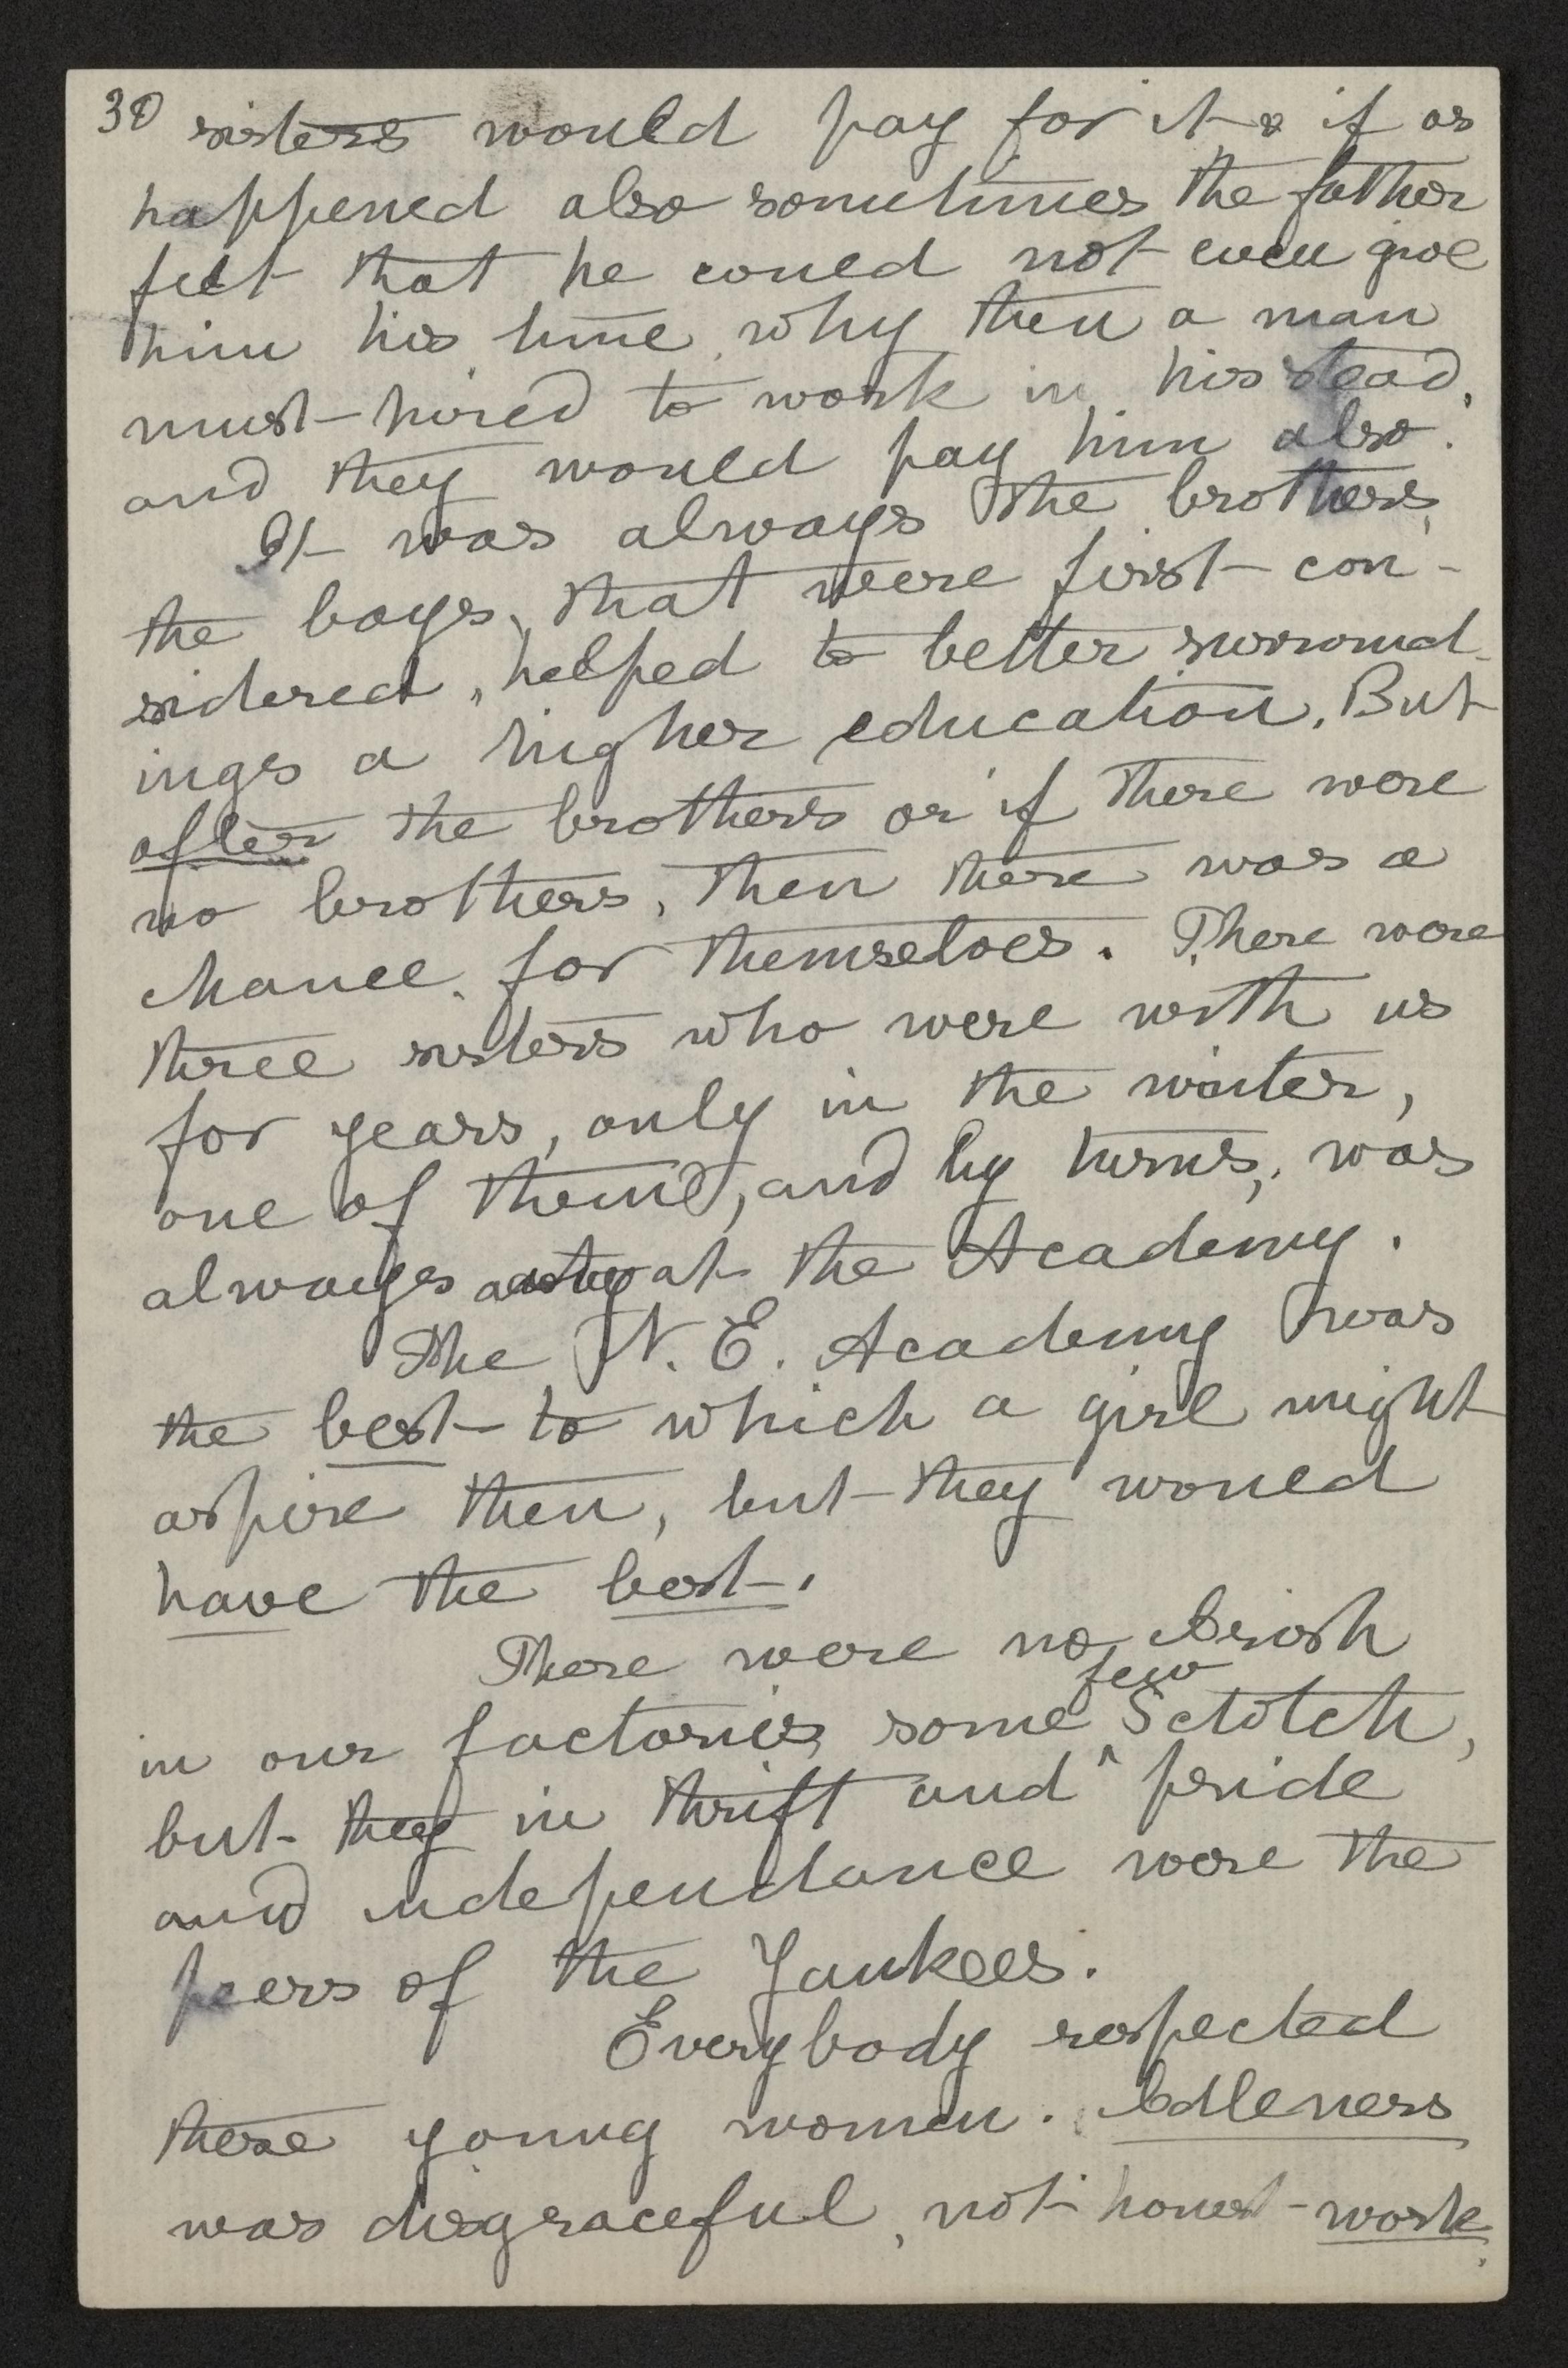 30 sisters would pay for it & if as
happened also sometimes the father
felt that he could not even give
him his time, why then a man
must hired to work in his stead,
and they would pay him also.
It was always the brothers,
the boys, that were first con-
sidered, helped to better surround-
ings a higher education. But
after the brothers or if there were
no brothers, then there was a
chance for themselves. There were
three sisters who were with us
for years, only in the winter,
one of them, and by turns, was
always at the Academy.
The N. E. Academy was
the best to which a girl might
aspire then, but they would
have the best.
There were no Irish
in our factories, some few Sctotch,
but they in thrift and pride
and independance were the
peers of the Yankees.
Everybody respected
these young women. Idleness
was disgraceful, not honest work.